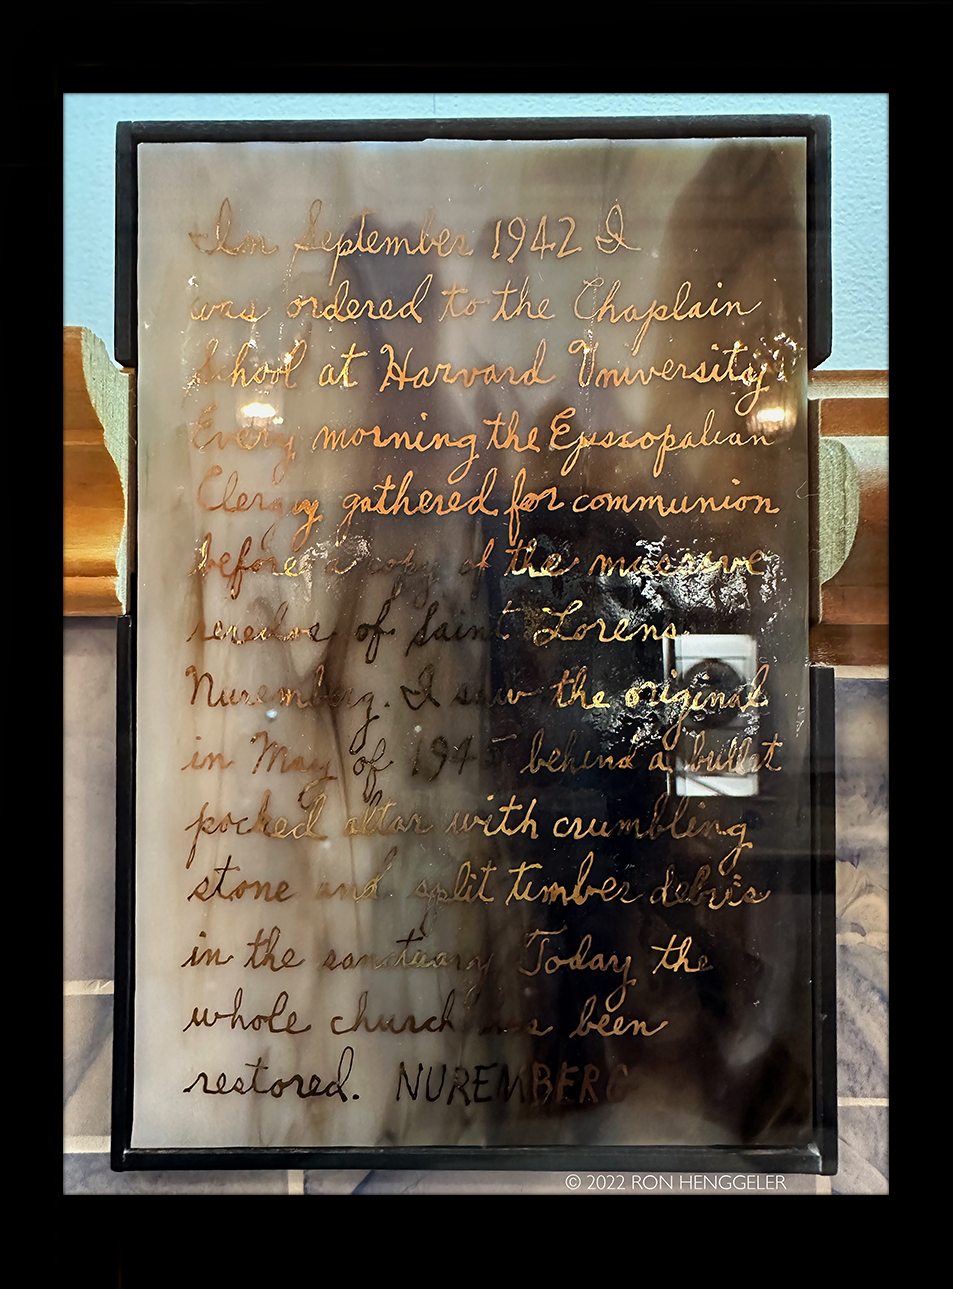 In September 1942 I
was ordered to the Chaplain
School at Harvard University
Every morning the Episcopalian
Clergy gathered for communion
before a copy of the massive
reredos of Saint Lorens
Nuremberg. I saw the original
in May of 1945 behind a bullet
pocked altar with crumbling
stone and split timber debris
in the sanctuary Today the
whole church has been
restored. NUREMBERG
© 2022 RON HENGGELER